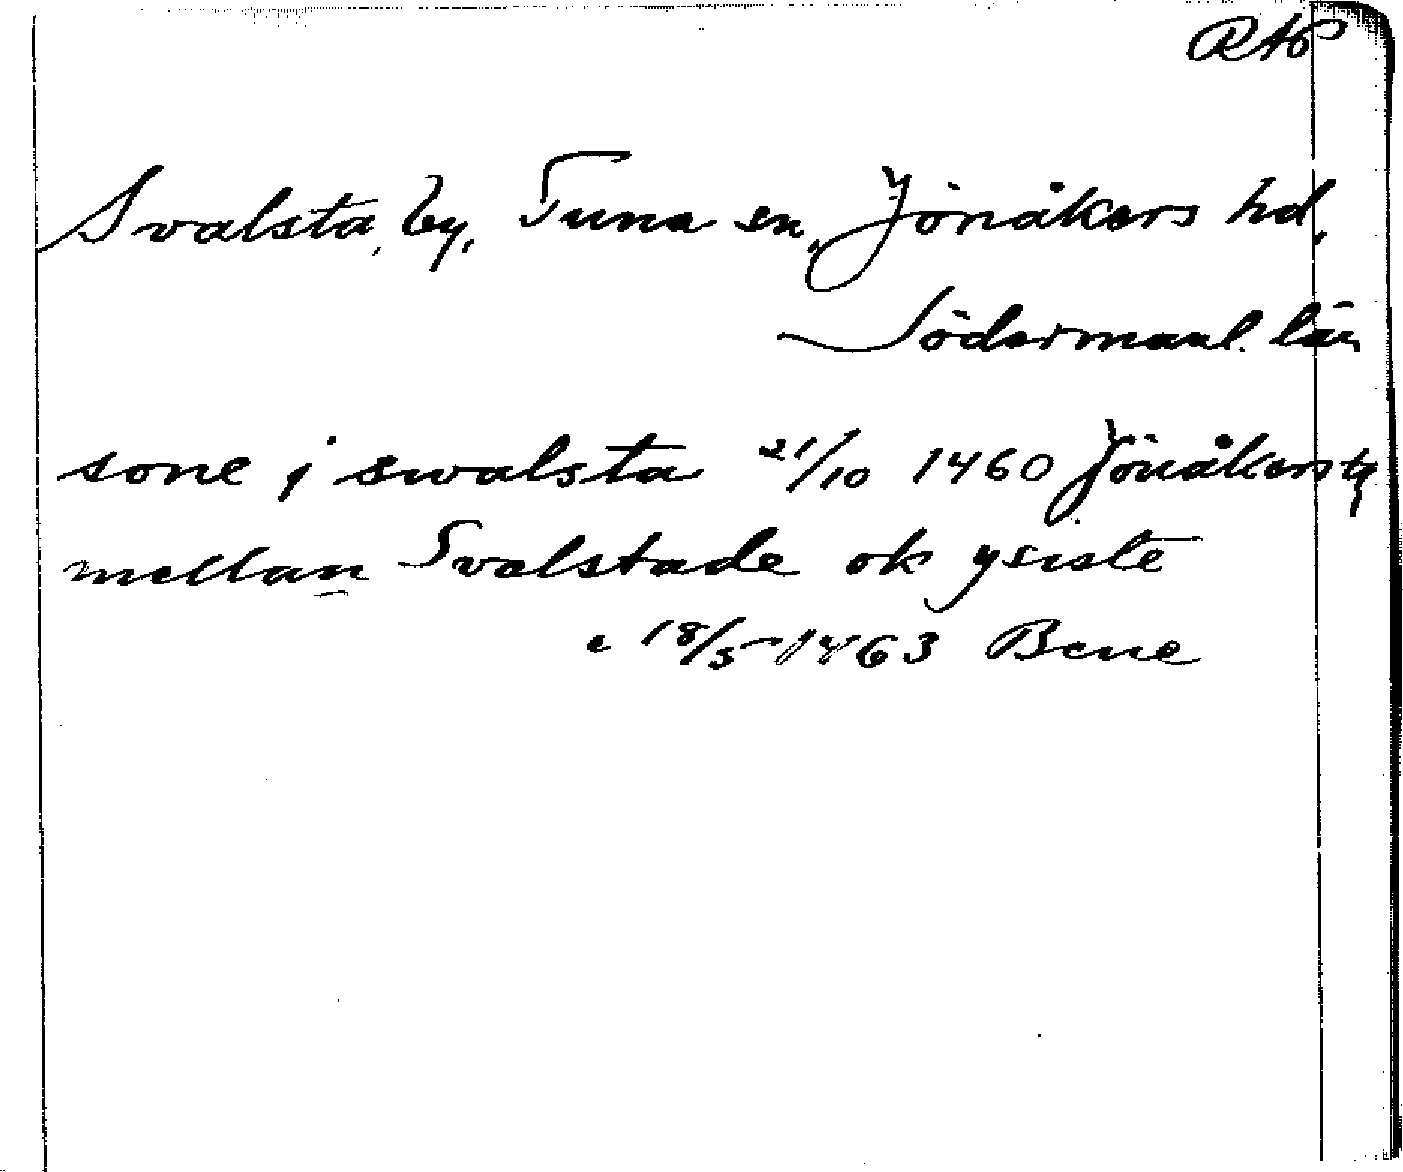 RAP
Svalsta, by, Tuna sn, Jönåkers hd,
Södermanl. län
sone j swalsta 21/10 1460 Jönåkers
mellan Svalstade ok
18/5 1463 Bene